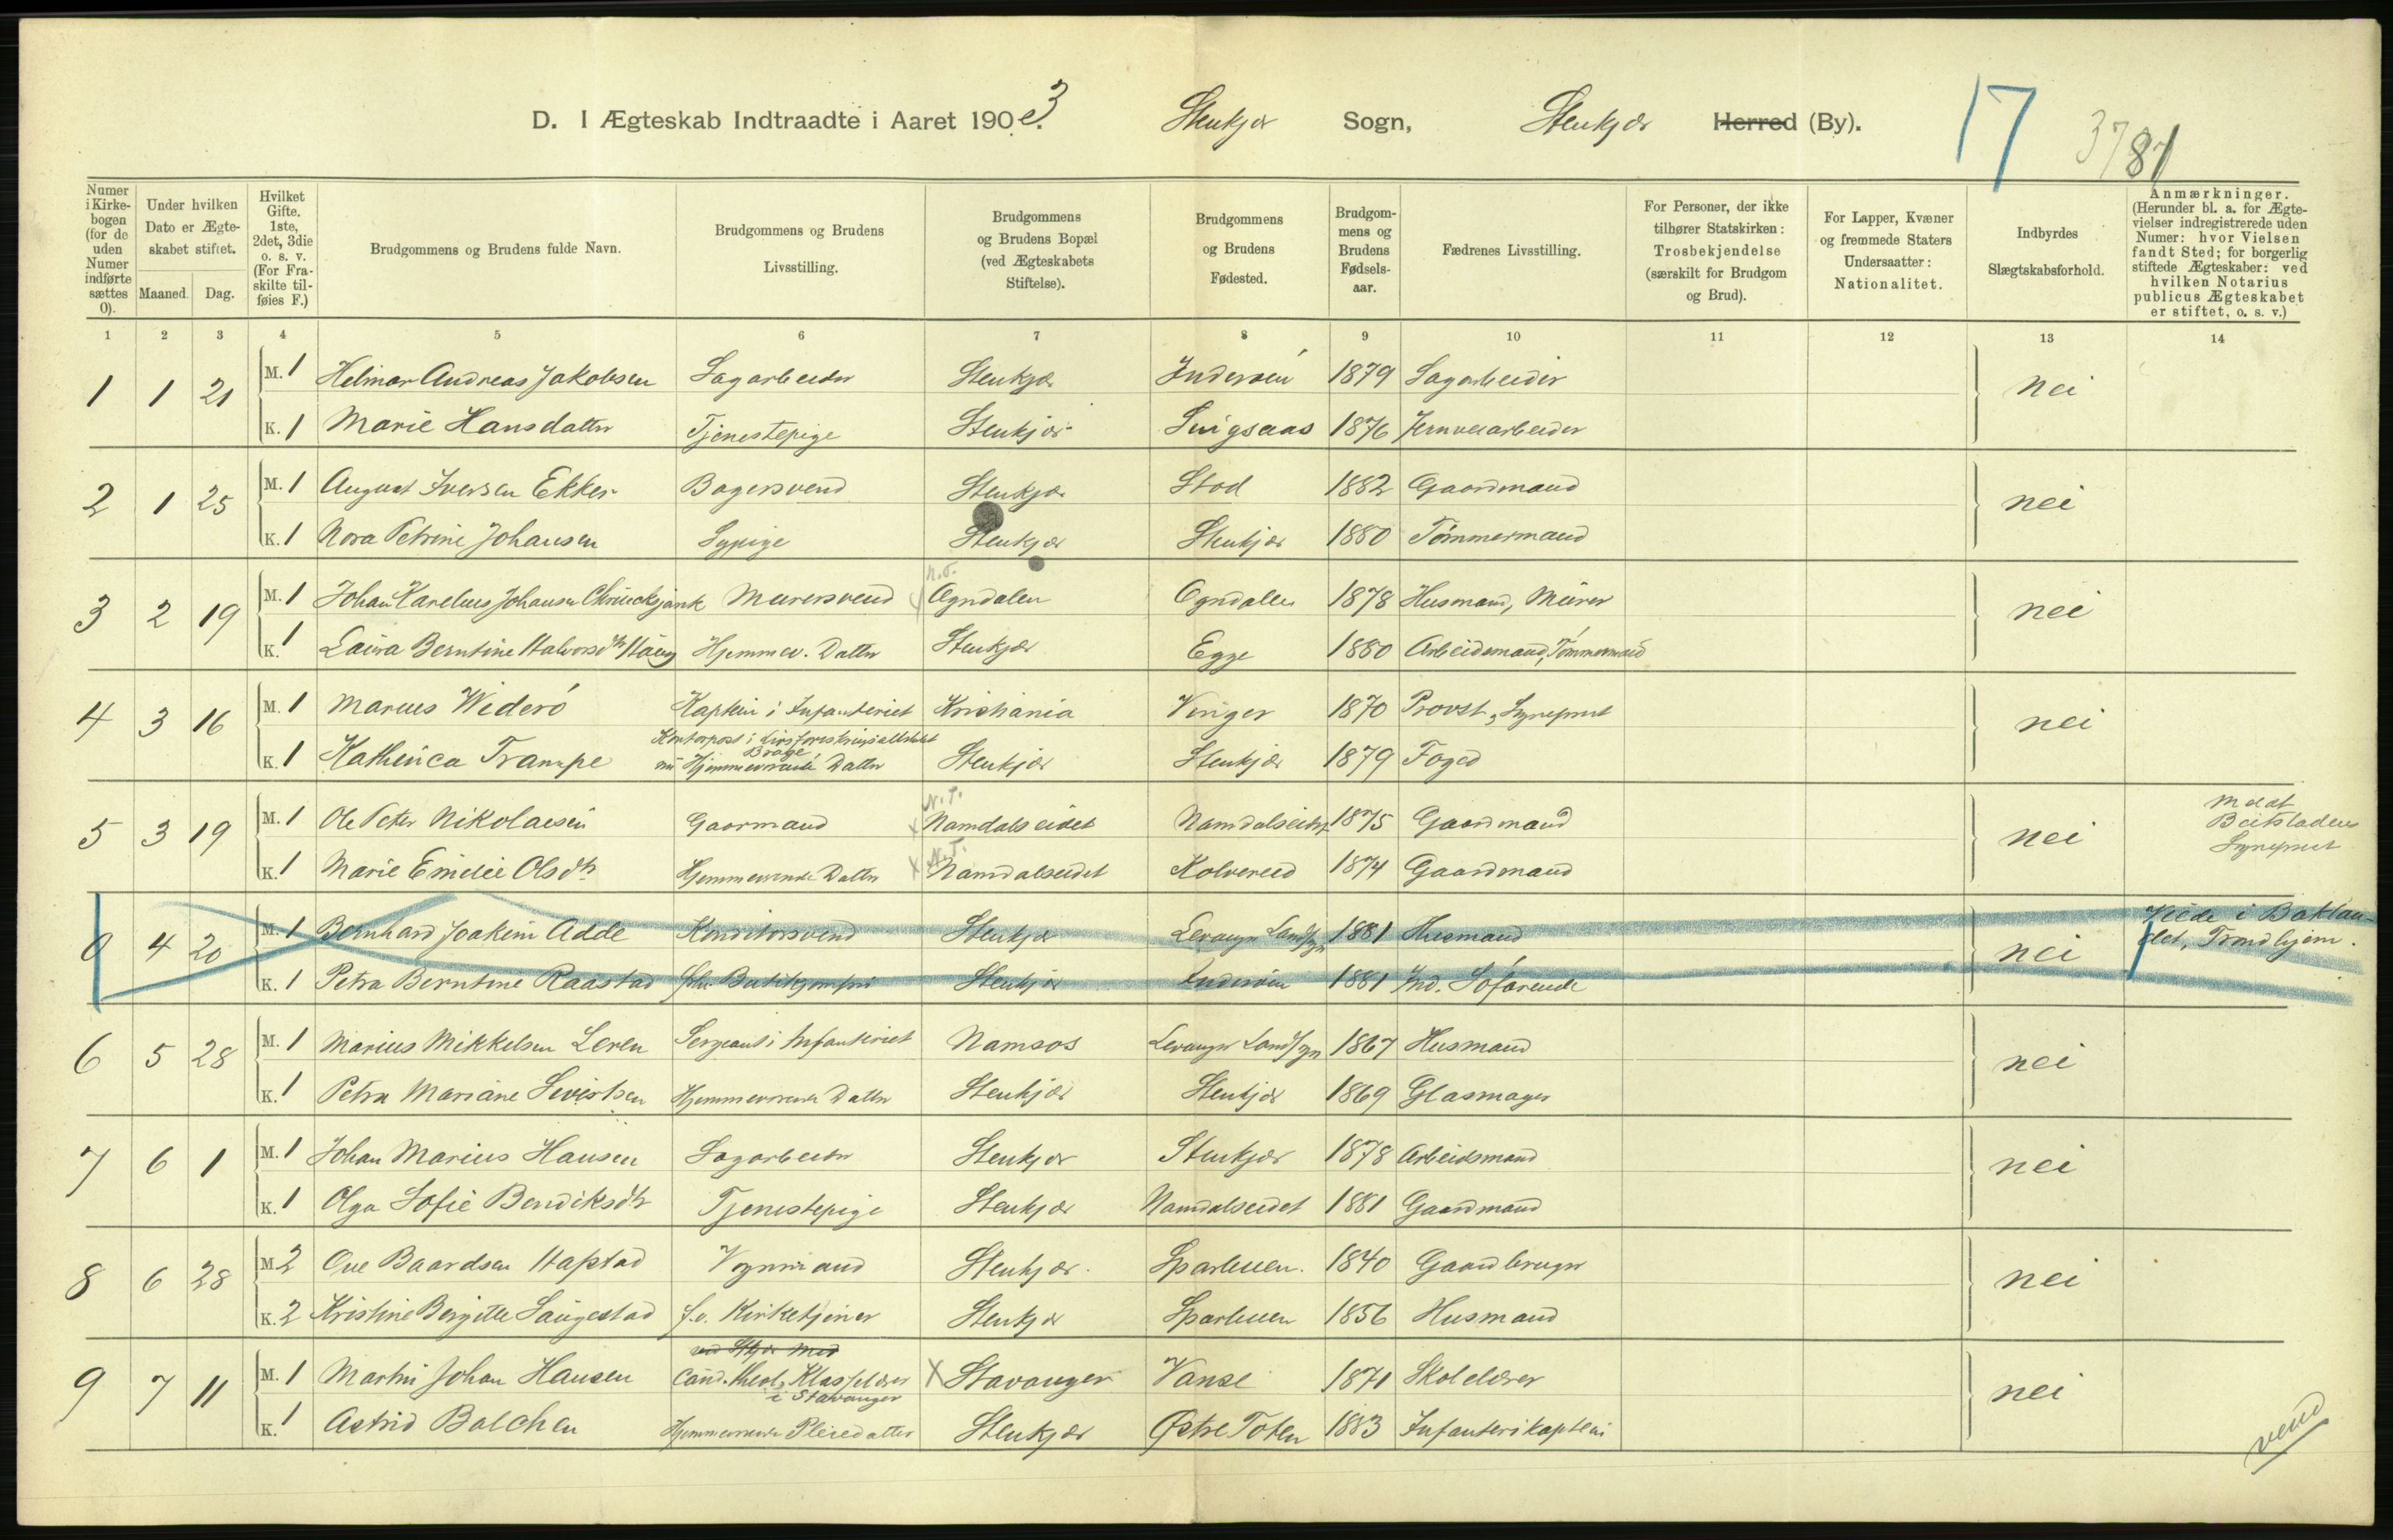 D. I Ægteskab Indtraadte i Aaret 1903. Stenkjær Sogn, Stenkjær Herred (By). 17 3781
Numer i Kirkebogen (for de uden Numer indførte sættes 0).
Under hvilken Dato er Ægteskabet stiftet.
Maaned. Dag.
Hvilket Gifte. 1ste, 2det, 3die o. s. v. (For Fraskilte tilføies F.)
Brudgommens og Brudens fulde Navn.
Brudgommens og Brudens Livsstilling.
Brudgommens og Brudens Bopæl (ved Ægteskabets Stiftelse).
Brudgommens og Brudens Fødested.
Brudgommens og Brudens Fødselsaar.
Fædrenes Livsstilling.
For Personer, der ikke tilhører Statskirken: Trosbekjendelse (særskilt for Brudgom og Brud).
For Lapper, Kvæner og fremmede Staters Undersaatter: Nationalitet.
Indbyrdes Slægtskabsforhold.
Anmærkninger. (Herunder bl. a. for Ægtevielser indregistrerede uden Numer: hvor Vielsen fandt Sted; for borgerlig stiftede Ægteskaber: ved hvilken Notarius publicus Ægteskabet er stiftet, o. s. v.)
1 2 3 4 5 6 7 8 9 10 11 12 13 14
1 1 21 M. 1 Helmar Andreas Jakobsen Sagarbeider Stenkjær Inderøen 1879 Sagarbeider nei
K. 1 Marie Hansdatter Tjenestepige Stenkjær Singsaas 1876 Jernveiarbeider
2 1 25 M. 1 August Iversen Ekker Bagersvend Stenkjær Stod 1882 Gaardmand nei
K. 1 Nora Petrine Johansen Sypige Stenkjær Stenkjær 1880 Tømmermand
N.T.
3 2 19 M. 1 Johan Karelius Johansen Murersvend Ogndalen Ogndalen 1878 Husmand, Murer nei
K. 1 Laura Berntine Halvorsdtr Haug Hjemmev. Datter Stenkjær Egge 1880 Arbeidsmand, Tømmermand
4 3 16 M. 1 Marius Widerø Kaptein i Infanteriet Kristiania Vinger 1870 Provst, Sogneprest nei
Kontorpost i Livsforsikringsselskabet
Brage
K. 1 Kathinca Trampe nu Hjemmeværende Datter Stenkjær Stenkjær 1879 Foged
N.T.
5 3 19 M. 1 Ole Peter Nikolaisen Gaardmand Namdalseidet Namdalseidet 1875 Gaardmand nei Meldt Beitstadens Sogneprest
N.T.
K. 1 Marie Emelie Olsdtr Hjemmeværende Datter Namdalseidet Kolvereid 1874 Gaardmand
0 4 20 M. 1 Bernhard Joakim Adde Konditorsvend Stenkjær Levanger Landsogn 1881 Husmand nei Viede i Baklandet, Trondhjem.
K. 1 Petra Berntine Raastad Butikjomfru Stenkjær Inderøen 1881 Ind. Søfarende
6 5 28 M. 1 Marius Mikkelsen Leren Sergeant i Infanteriet Namsos Levanger Landsogn 1867 Husmand nei
K. 1 Petra Mariane Sivertsen Hjemmeværende Datter Stenkjær Stenkjær 1869 Glasmager
7 6 1 M. 1 Johan Marius Hansen Sagarbeider Stenkjær Stenkjær 1878 Arbeidsmand nei
K. 1 Olga Sofie Bendiksdtr Tjenestepige Stenkjær Namdalseidet 1881 Gaardmand
8 6 28 M. 2 Ove Baardsen Hapstad Vognmand Stenkjær. Sparbuen. 1840 Gaardbruger nei
K. 2 Kristine Bergitte Saugestad f.v. Kirketjener Stenkjær Sparbuen 1856 Husmand
9 7 11 M. 1 Martin Johan Hansen Cand. theol., Klasselærer X Stavanger Vanse 1871 Skolelærer nei
i Stavanger
K. 1 Astrid Balchen Hjemmeværende Pleiedatter Stenkjær Østre Toten 1883 Infanterikaptein
vend